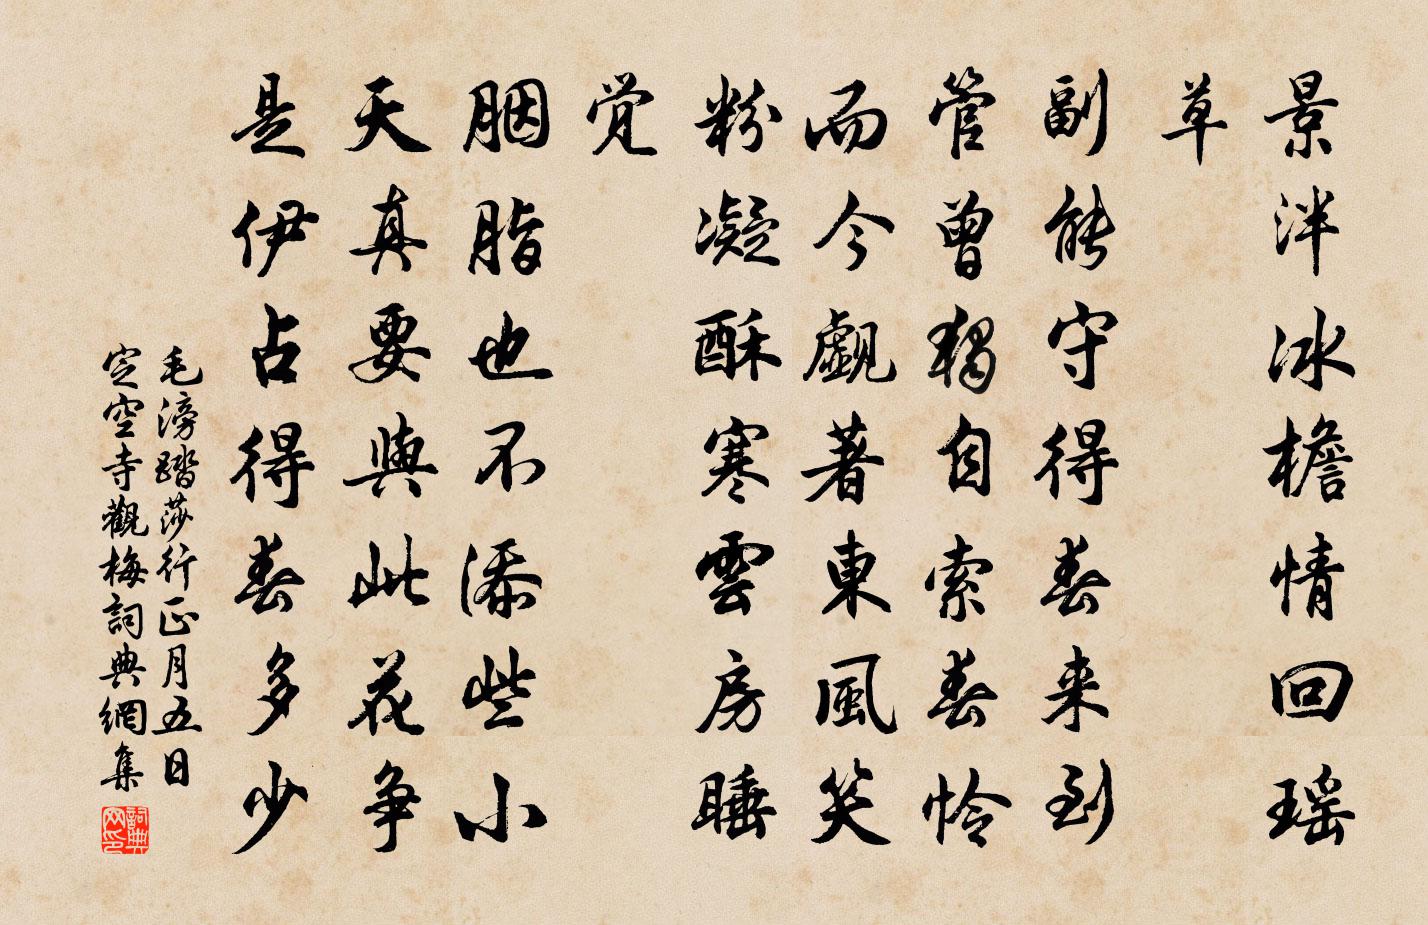 景泮冰檐情回瑶
草
副能守得春来到
管曾獨自索春怜
而今覷著東風笑
粉凝酥寒雲房睡
觉
胭脂也不添些小
天真要與此花争
是伊占得春多少
毛滂踏莎行正月五日
定空寺觀梅詞典網集
詞典网印